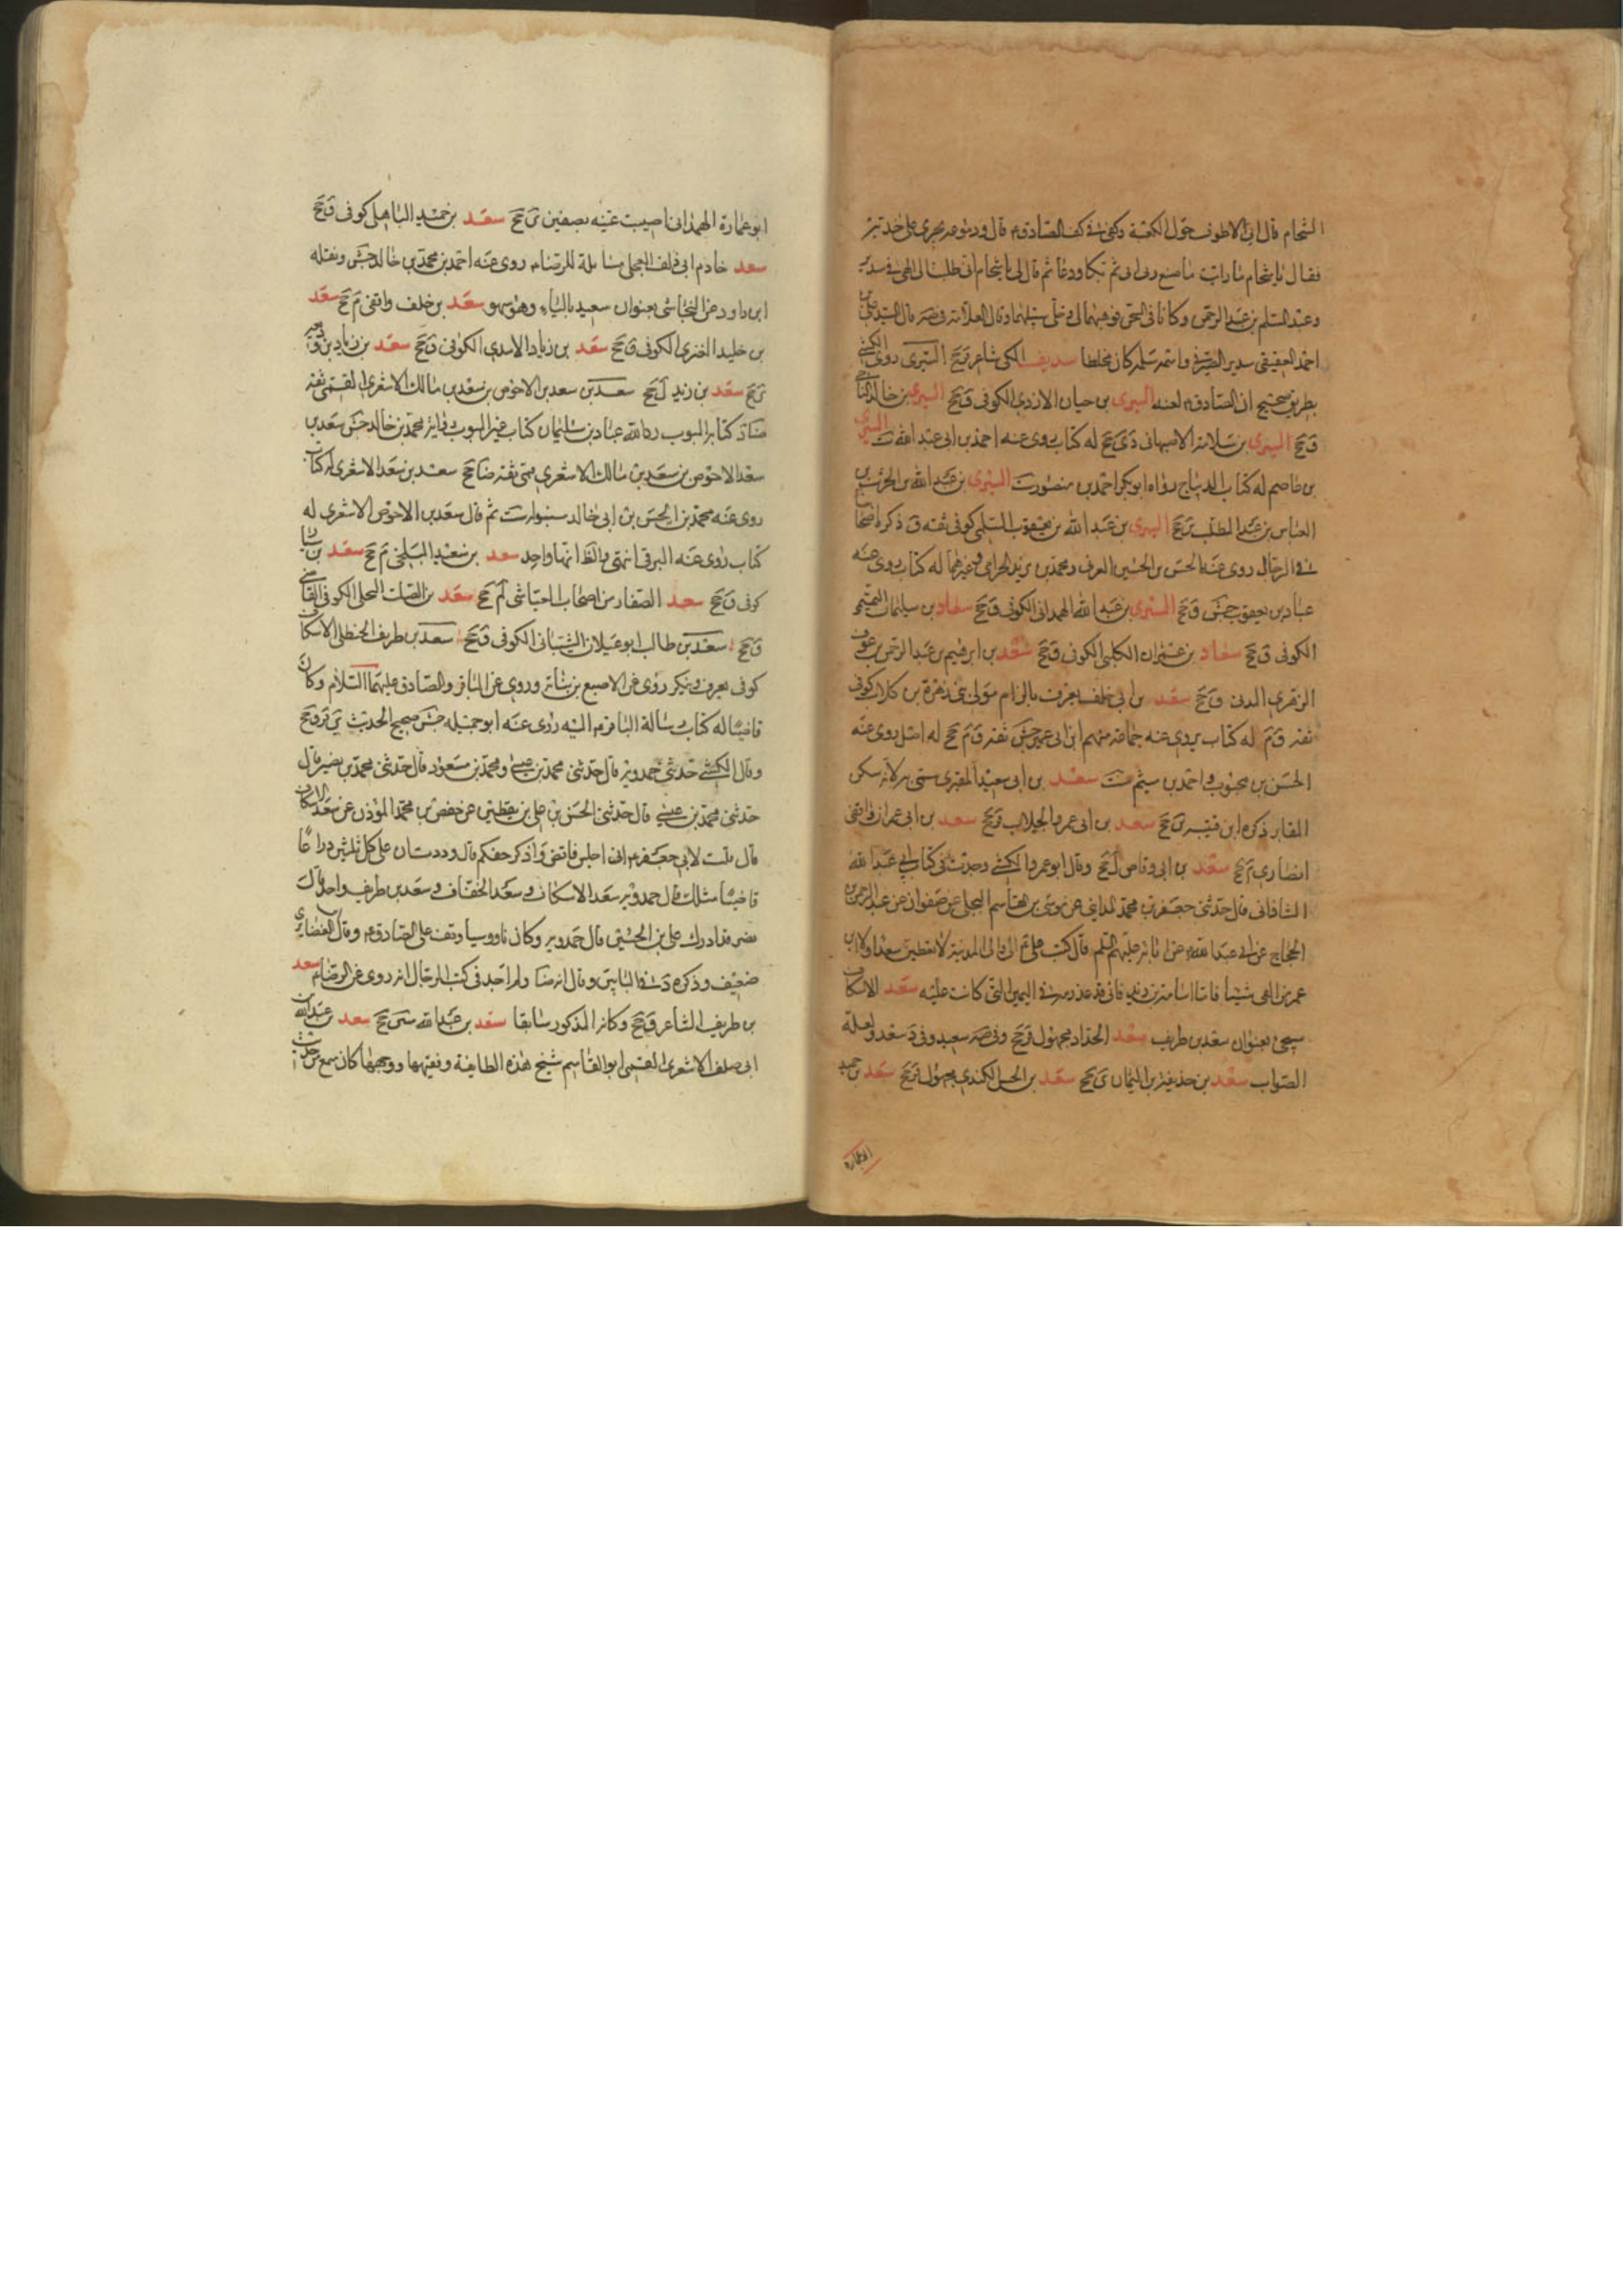 الشحام قال انى لاطوف حول الكعبة وكفى فى كف الصادق ع قال ودموعه تجرى على خديه
فقال يا شحام ما رايت ما صنع ربى الى ثم بكا ودعا ثم قال لى يا شحام انى طلبت الى الهى فى سدير
وعبد السلم بن عبد الرحمن وكانا فى السجن فوهبهما لى وخلى سبيلهما وقال العلامة فى صه قال السيد على بن
احمد العقيقى سدير الصيرفى واسمه سلمه كان مخلطا سديف المكى شاعر ق جخ السرى روى الكشى
بطريق صحيح ان الصادق ع لعنه السرى بن حيان الازدى الكوفى ق جخ السرى بن خالد الناجى
ق جخ السرى بن سلامة الاصبهانى دى جخ له كتاب روى عنه احمد بن ابى عبد الله ست السرى
بن عاصم له كتاب الديباج رواه ابو بكر احمد بن منصور ست السرى بن عبد الله بن الحرث بن
العباس بن عبد المطلب ين جخ السرى بن عبد الله بن يعقوب السلمى كوفى ثقه ق ذكره اصحابنا
فى الرجال روى عنه الحسن بن الحسين العرنى ومحمد بن يزيد الحرامى وغيرهما له كتاب روى عنه
عباد بن يعقوب جش ق جخ السرى بن عبد الله الهمدانى الكوفى ق جخ سعاد بن سليمان التميمى
الكوفى ق جخ سعاد بن عمران الكلبى الكوفى ق جخ سعد بن ابرهيم بن عبد الرحمن بن عوف
الزهرى المدنى ق جخ سعد بن ابى خلف يعرف بالزام مولى بنى زهرة بن كلاب كوفى
ثقه ق م له كتاب يرويه عنه جماعة منهم ابن ابى عمير جش ثقه ق م جخ له اصل روى عنه
الحسن بن محبوب واحمد بن ميثم ست سعد بن ابى سعيد المقبرى سمى به لانه سكن
المقابر ذكره ابن قتيبه ين جخ سعد بن ابى عمرو الجلاب ق جخ سعد بن ابى عمران واقفى
انصارى م جخ سعد بن ابى وقاص ل جخ وقال ابو عمرو الكشى وجدت فى كتاب ابى عبد الله
الشاذانى قال حدثنى جعفر بن محمد المداينى عن موسى بن القاسم البجلى عن صفوان عن عبد الرحمن بن
الحجاج عن ابى عبد الله ع عن ابائه عليهم السلم قال كتب على ع الى والى المدينة لا تعطين سعدا ولا ابن
عمر من الفى شيئا فاما اسامة بن زيد فانى قد عذرته فى اليمين التى كانت عليه سعد الاسكاف
سيجئ بعنوان سعد بن طريف سعد الحداد مجهول ق جخ وفى صه سعيد وفى د سعد ولعله
الصواب سعد بن حذيفة بن اليمان ى جخ سعد بن الحسن الكندى مجهول ق جخ سعد بن حميد
ابو عمارة
ابو عمارة الهمدانى اصيبت عينه بصفين ى جخ سعد بن حميد الباهلى كوفى ق جخ
سعد خادم ابى دلف العجلى مسايلة للرضا ع روى عنه احمد بن محمد بن خالد جش ونقله
ابن داود عن النجاشى بعنوان سعيد بالياء وهو سهو سعد بن خلف واقفى م جخ سعد
بن خليد العنزى الكوفى ق جخ سعد بن زياد الاسدى الكوفى ق جخ سعد بن زياد بن وديعه
ى جخ سعد بن زيد ل جخ سعد بن سعد بن الاحوص بن سعد بن مالك الاشعرى القمى ثقه
ضا د كتابه المبوب رواية عباد بن سليمان كتاب غير المبوب رواية محمد بن خالد جش سعد بن
سعد الاحوص بن سعد بن مالك الاشعرى قمى ثقه ضا جخ سعد بن سعد الاشعرى له كتاب
روى عنه محمد بن الحسن بن ابى خالد سنبوله ست ثم قال سعد بن الاحوص الاشعرى له
كتاب روى عنه البرقى انتهى والظ انهما واحد سعد بن سعيد البلخى م جخ سعد بن
كوفى ق جخ سعد الصفار من اصحاب العياشى لم جخ سعد بن الصلت البجلى الكوفى القاضى
ق جخ سعد بن طالب ابو غيلان الشيبانى الكوفى ق جخ سعد بن طريف الحنظلى الاسكاف
كوفى يعرف وينكر روى عن الاصبغ بن نباته وروى عن الباقر والصادق عليهما السلام وكان
قاضيا له كتاب رسالة الباقر ع اليه روى عنه ابو جميله جش صحيح الحديث ين قر ق جخ
وقال الكشى حدثنى حمدويه قال حدثنى محمد بن عيسى ومحمد بن مسعود قال حدثنى محمد بن نصير قال
حدثنى محمد بن عيسى قال حدثنى الحسن بن على بن يقطين عن حفص بن محمد المؤذن عن سعد الاسكاف
قال قلت لابى جعفر ع انى اجلس فاقص واذكر حقكم قال وددت ان على كل ثلثين ذراعا
قاضيا مثلك قال حمدويه سعد الاسكاف وسعد الخفاف وسعد بن طريف واحد قال
نصر قد ادرك على بن الحسين قال حمدويه وكان ناووسيا وقف على الصادق ع وقال ابن الغضايرى
ضعيف وذكره د فى البابين وقال انه ضا ولم اجد فى كتب الرجال انه روى عن الرضا ع سعد
بن طريف الشاعر ق جخ وكانه المذكور سابقا سعد بن عبد الله سين جخ سعد بن عبد الله بن
ابى خلف الاشعرى القمى ابو القاسم شيخ هذه الطايفة وفقيهها ووجهها كان سمع من حديث